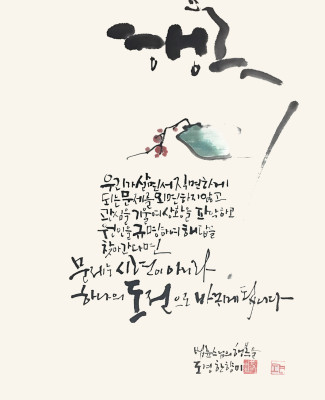 행복
우리가 살면서 직면하게
되는 문제를 외면하지 않고
관심을 기울여 상황을 파악하고
원인을 규명하여 해답을
찾아간다면
문제는 시련이 아니라
하나의 도전으로 바뀌게 됩니다
법륜스님의 행복 중
도영 한향미